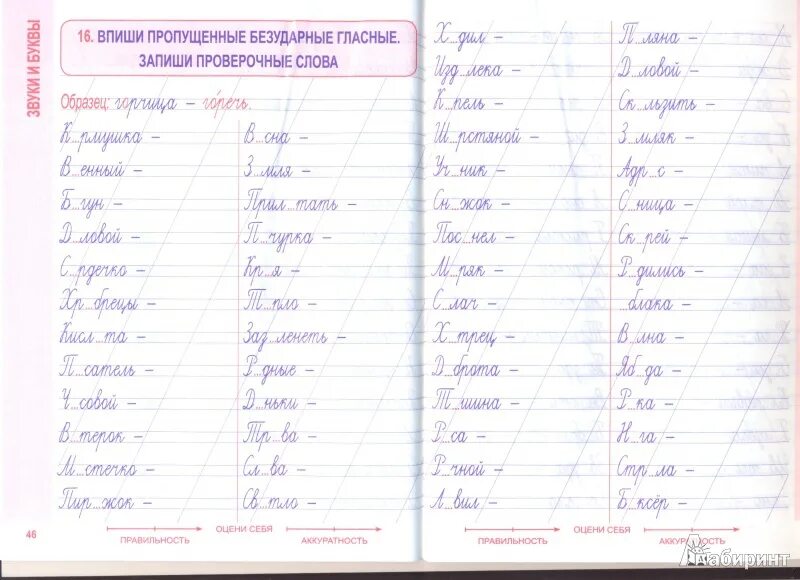 ЗВУКИ И БУКВЫ
16. ВПИШИ ПРОПУЩЕННЫЕ БЕЗУДАРНЫЕ ГЛАСНЫЕ.
ЗАПИШИ ПРОВЕРОЧНЫЕ СЛОВА
Образец: горчица – го́речь.
К...рмушка –
В...енный –
Б...гун –
Д...ловой –
С...рдечко –
Хр...брецы –
Кисл...та –
П...сатель –
Ч...совой –
В...терок –
М...стечко –
Пир...жок –
В...сна –
З...мля –
Прил...тать –
П...чурка –
Кр...я –
Т...пло –
Заз...ленеть –
Р...дные –
Д...ньки –
Тр...ва –
Сл...ва –
Св...тло –
46
ПРАВИЛЬНОСТЬ
ОЦЕНИ СЕБЯ
АККУРАТНОСТЬ
Х...дил –
Изд...лека –
К...пель –
Ш...рстяной –
Уч...ник –
Сн...жок –
Пос...нел –
М...ряк –
С...лач –
Х...трец –
Д...брота –
Т...шина –
Р...са –
Р...чной –
Л...вил –
П...ляна –
Д...ловой –
Ск...льзить –
З...мляк –
Адр...с –
С...ница –
Ск...рей –
Р...дились –
...блака –
В...лна –
Яб...да –
Р...ка –
Н...га –
Стр...ла –
Б...ксёр –
ПРАВИЛЬНОСТЬ
ОЦЕНИ СЕБЯ
АККУРАТНОСТЬ
Лабиринт